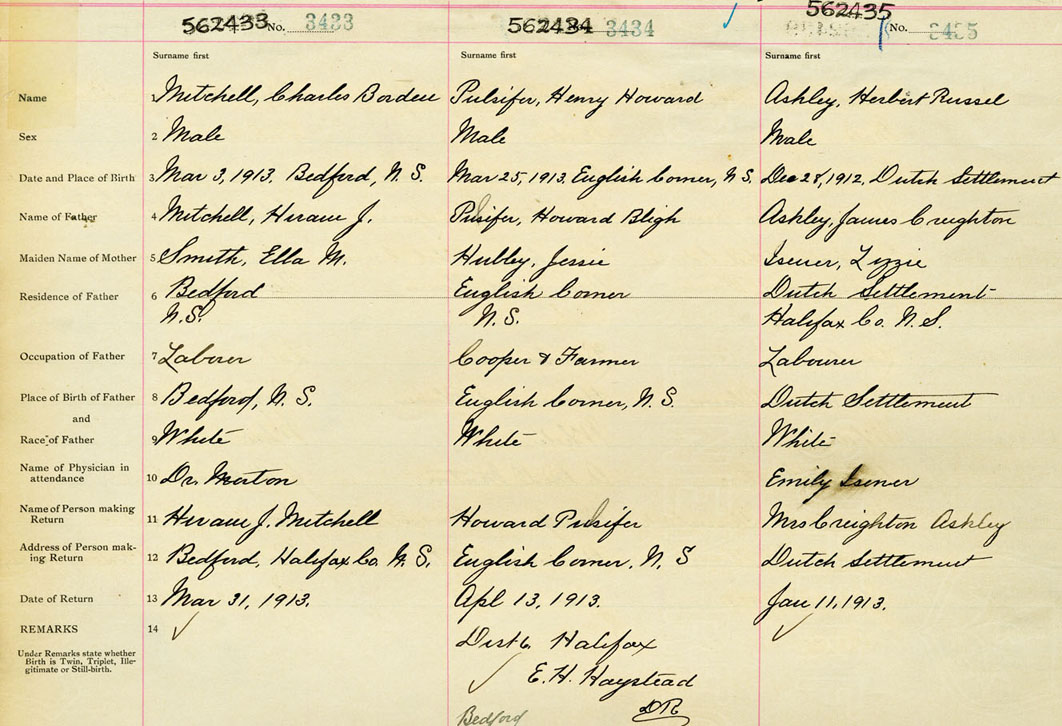 562433 No. 3433 562434 No. 3434 562435 No. 3435
Surname first Surname first Surname first
Name 1 Mitchell, Charles Borden Pulsifer, Henry Howard Ashley, Herbert Russel
Sex 2 Male Male Male
Date and Place of Birth 3 Mar 3, 1913. Bedford, N. S. Mar 25, 1913. English Corner, N. S. Dec 28, 1912. Dutch Settlement
Name of Father 4 Mitchell, Hiram J. Pulsifer, Howard Bligh Ashley, James Creighton
Maiden Name of Mother 5 Smith, Ella M. Hubley, Jessie Isener, Lizzie
Residence of Father 6 Bedford English Corner Dutch Settlement
N.S. N.S. Halifax Co. N.S.
Occupation of Father 7 Laborer Cooper & Farmer Labourer
Place of Birth of Father 8 Bedford, N. S. English Corner, N. S. Dutch Settlement
and
Race of Father 9 White White White
Name of Physician in
attendance 10 Dr. Morton Emily Isener
Name of Person making
Return 11 Hiram J. Mitchell Howard Pulsifer Mrs Creighton Ashley
Address of Person mak-
ing Return 12 Bedford, Halifax Co. N. S. English Corner, N. S Dutch Settlement
Date of Return 13 Mar 31, 1913. Apl 13, 1913. Jan 11, 1913.
REMARKS 14
Under Remarks state whether
Birth is Twin, Triplet, Ille-
gitimate or Still-birth.
Dist 6. Halifax
E. H. Haystead
DR
Bedford